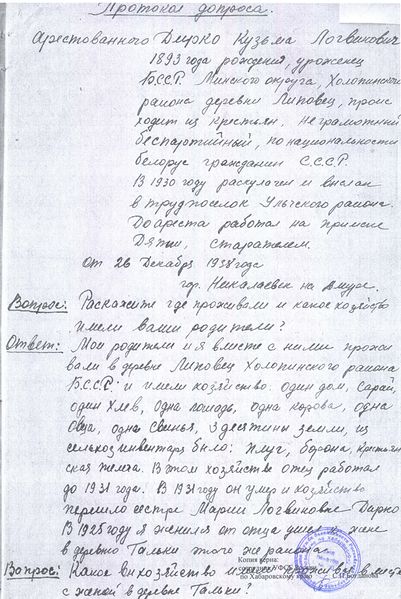 Протокол допроса.
Арестованного Дирко Кузьма Логвинович
1893 года рождения, уроженец
БССР. Минского округа, Холопинского
района деревни Липовец, проис
ходит из крестьян, неграмотный
беспартийный, по национальности
белорус гражданин СССР.
В 1930 году раскулачен и выслан
в трудпоселок Ульчского района.
До ареста работал на прииске
старателем.
от 26 Декабря 1938 года
гор. Николаевск на Амуре.
Вопрос: Раскажите где проживали и какое хозяйство
имели ваши родители?
Ответ: Мои родители и я вместе с ними прожи
вали в деревне Липовец Холопинского района
БССР и имели хозяйство: один дом, Сарай,
один Хлев, одна лошадь, одна корова, одна
Овца, одна Свинья, 3 десятины земли, из
сельхозинвентаря было: Плуг, борона, крестьян
ская телега. В этом хозяйстве отец работал
до 1931 года. В 1931 году он умер и хозяйство
перешло сестре Марии Логвиновне
В 1925 году я женился от отца ушел к жене
в деревню Тальки этого же района.
Вопрос: Какое вы хозяйство имели вместе
с женой в деревне Тальки?
Копия верна:
по Хабаровскому краю
С.Н. Богданова